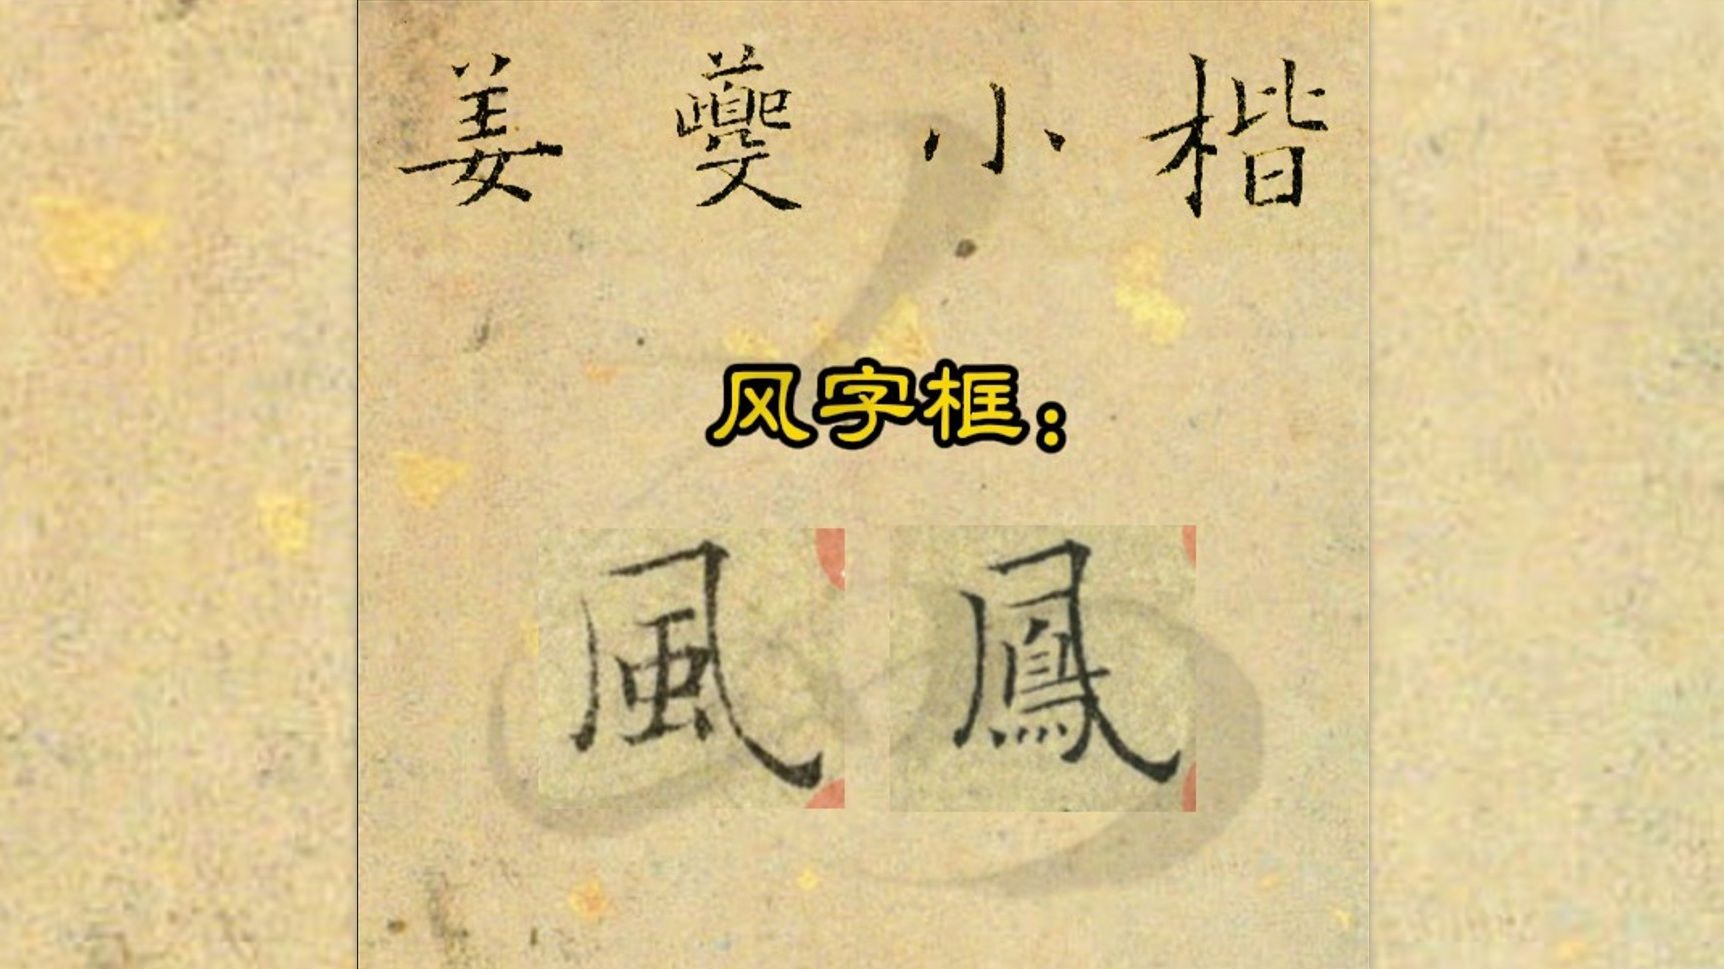 姜夔小楷
风字框：
風鳳